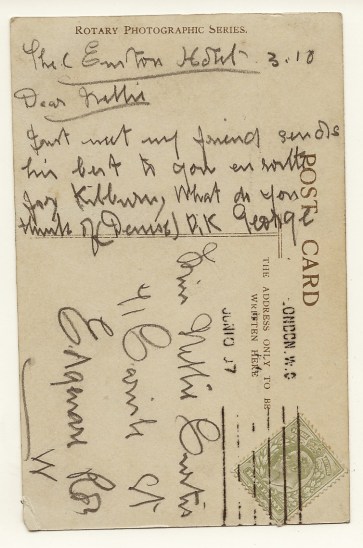 ROTARY PHOTOGRAPHIC SERIES.
The Euston Hotel 3.10
Dear Nellie
Just met my friend sends
his best to you en route
for Kilburn, What do you
think of Denise) D.K George
POST CARD
THE ADDRESS ONLY TO BE
WRITTEN HERE
LONDON. W.C
JUN 10 17
Miss Nellie Curtis
41 Carlisle St
Edgware Rd
W